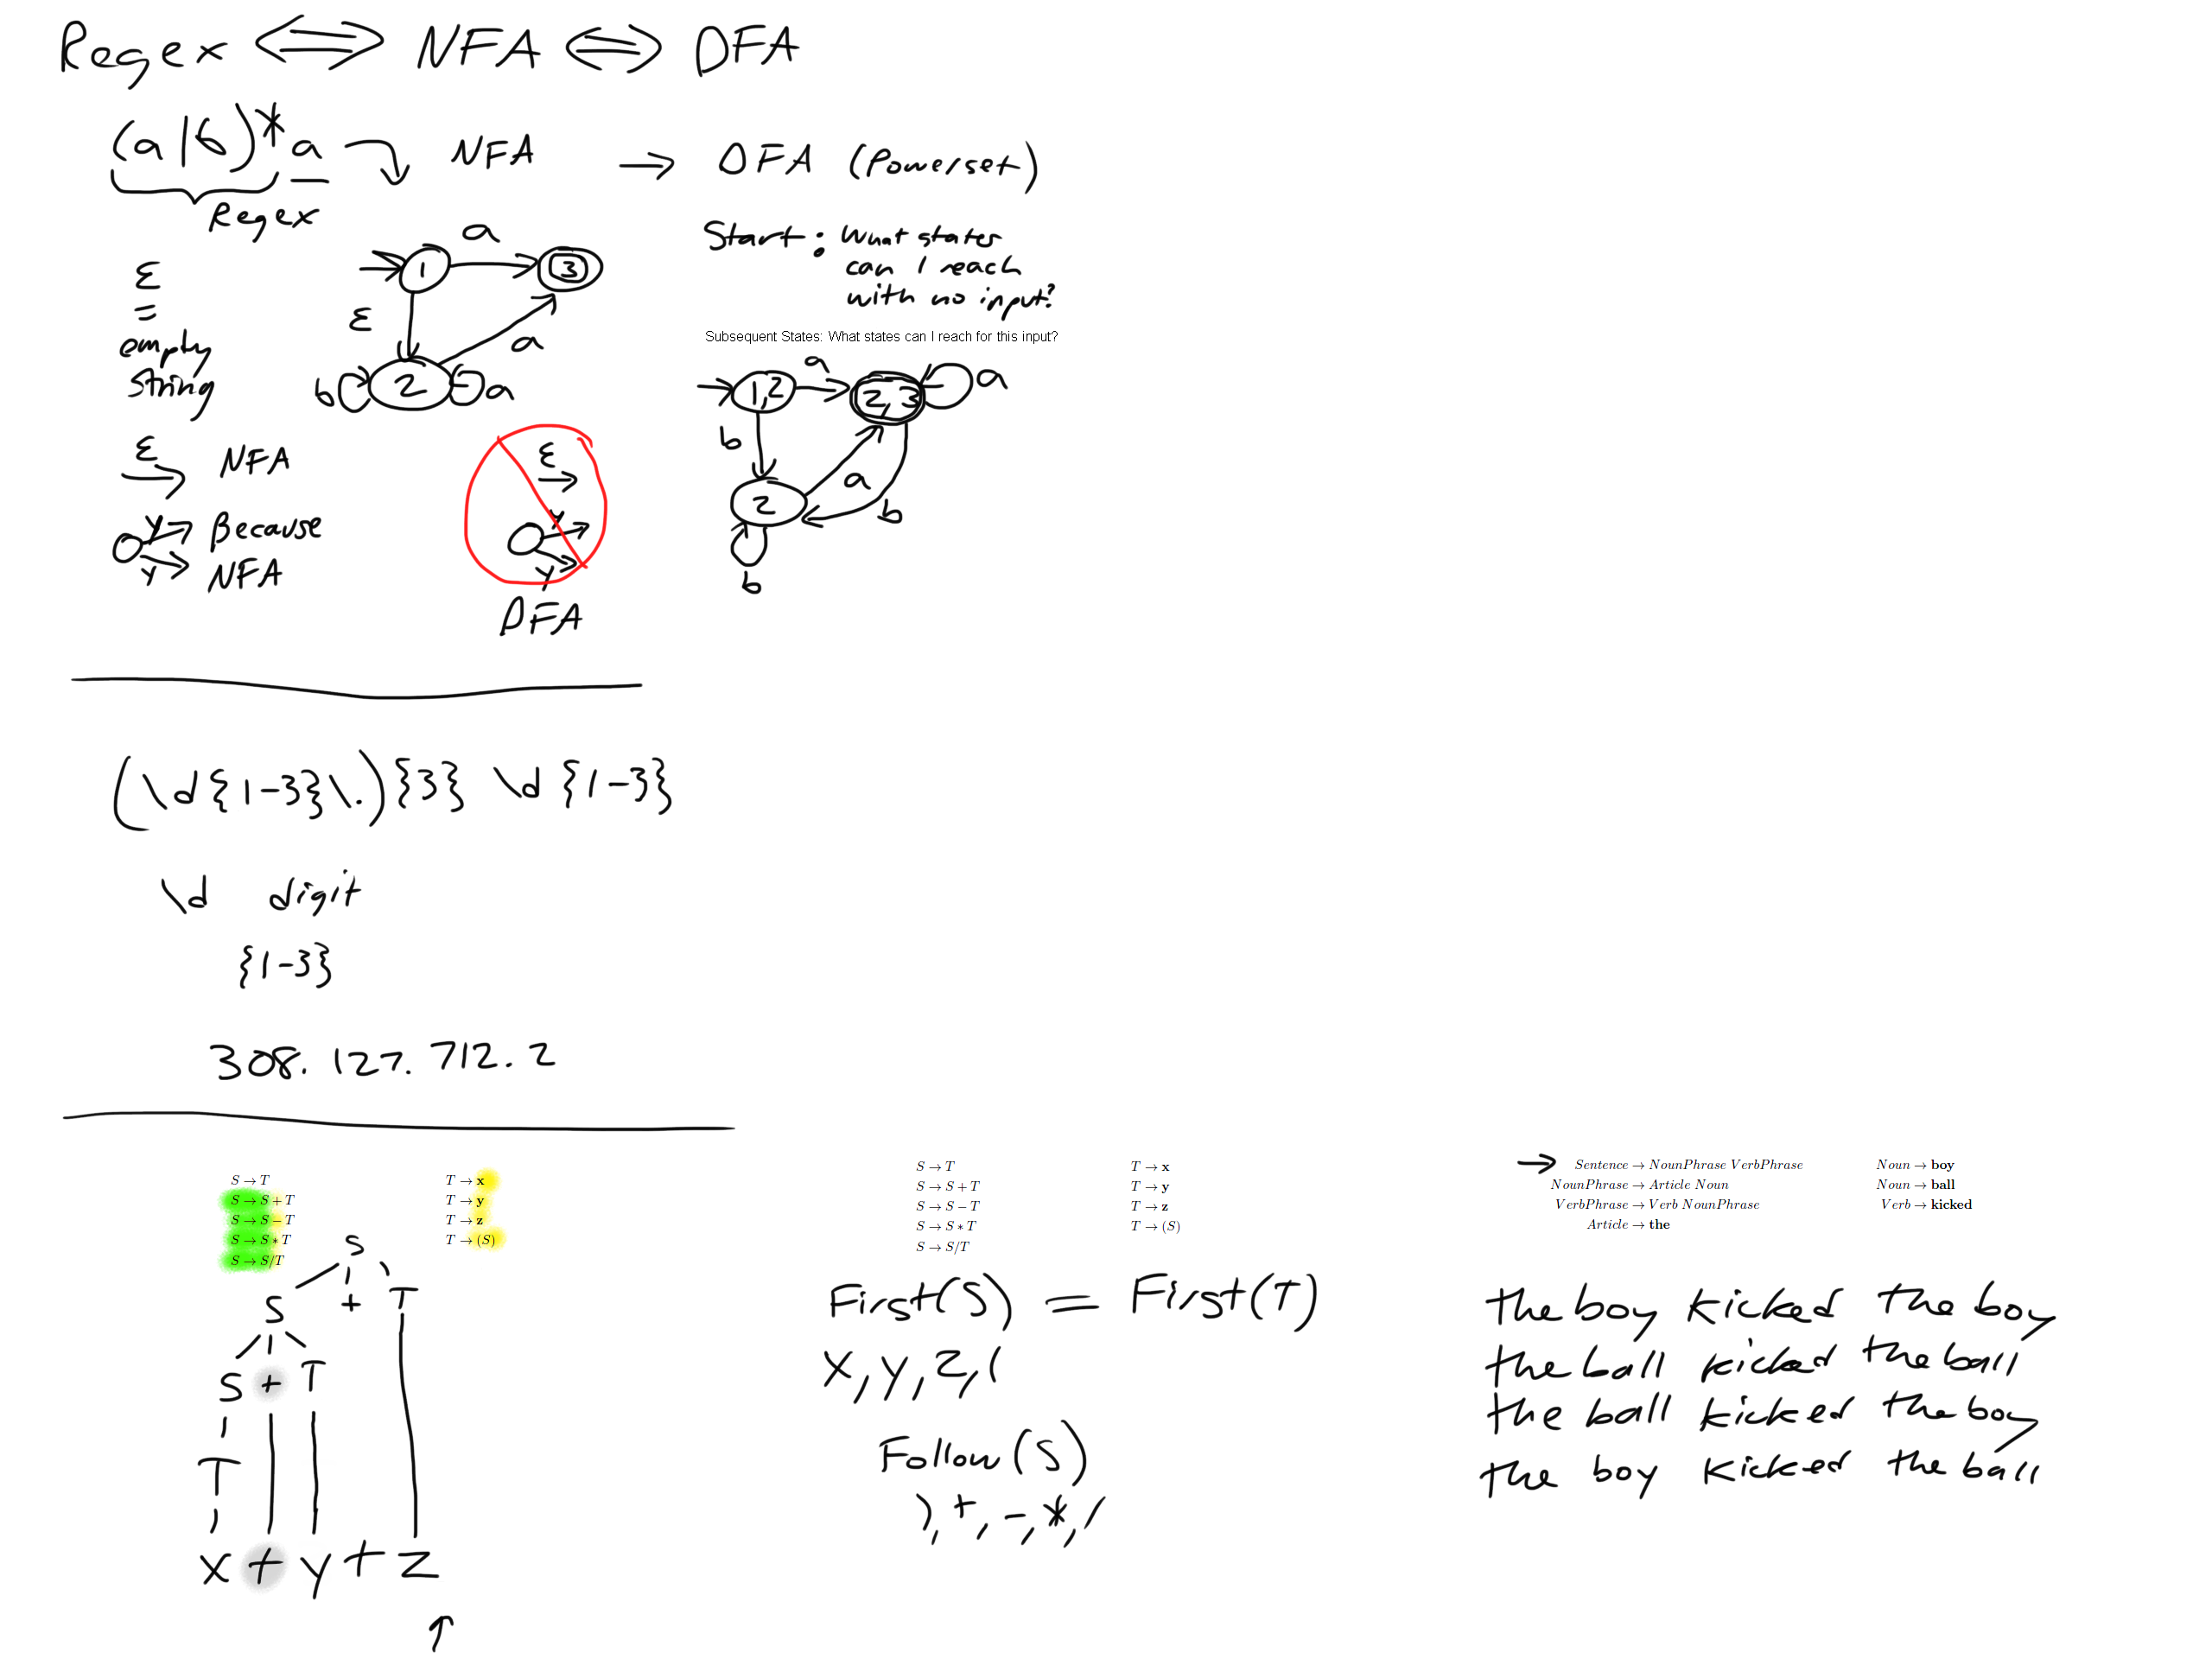 Regex ⟺ NFA ⟺ DFA
(a|b)*a
Regex
NFA → DFA (Powerset)
ε
=
empty
string
1 a 3
ε
a
b 2 a
ε → NFA
Y Because
Y NFA
ε →
Y
Y
DFA
Start: What states
can I reach
with no input?
Subsequent States: What states can I reach for this input?
1,2 a 2,3 a
b
2 a b
b
(\d{1-3}\.){3} \d{1-3}
\d digit
{1-3}
308.127.712.2
S → T
S → S + T
S → S − T
S → S ∗ T
S → S/T
T → x
T → y
T → z
T → (S)
S
S + T
S + T
T
x + y + z
↑
S → T
S → S + T
S → S − T
S → S ∗ T
S → S/T
T → x
T → y
T → z
T → (S)
First(S) = First(T)
x, y, z, (
Follow(S)
), +, -, *, /
→ Sentence → NounPhrase VerbPhrase
NounPhrase → Article Noun
VerbPhrase → Verb NounPhrase
Article → the
Noun → boy
Noun → ball
Verb → kicked
the boy kicked the boy
the ball kicked the ball
the ball kicked the boy
the boy kicked the ball